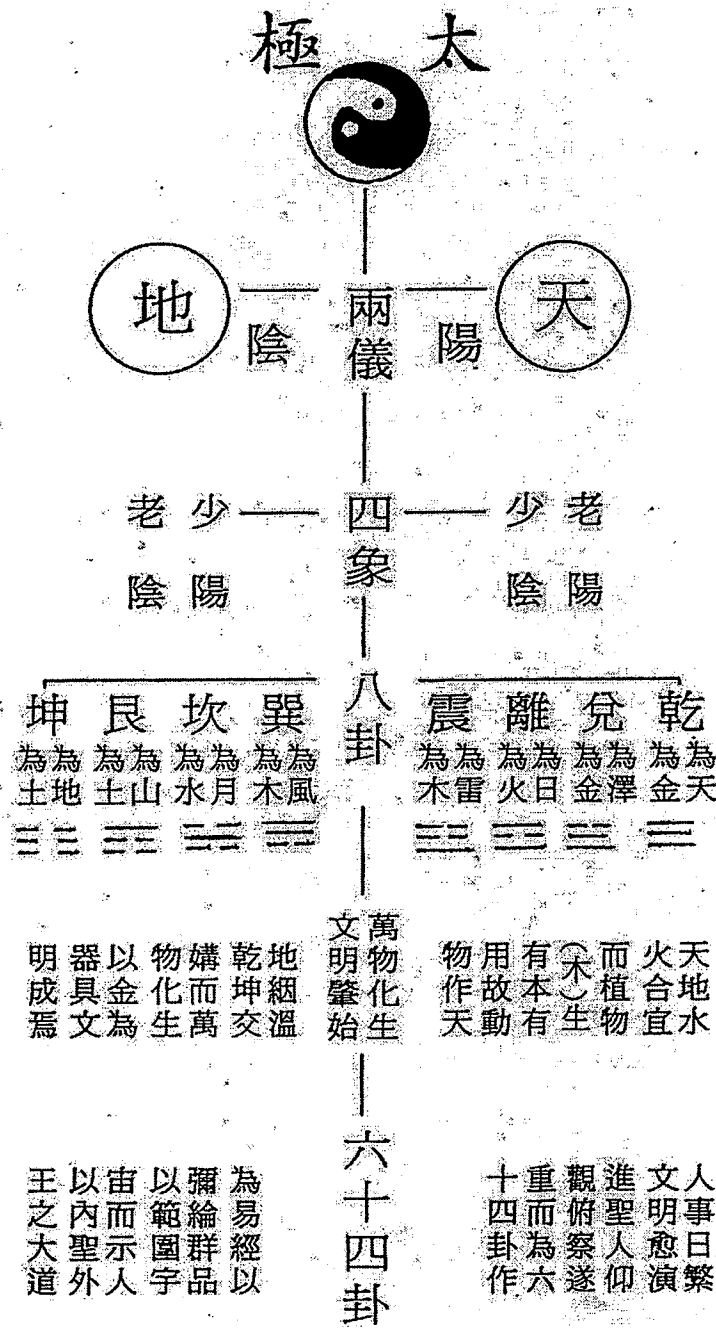 太極
天
陽
兩儀
陰
地
老陽
少陰
四象
少陽
老陰
八卦
乾
為天
為金
兌
為澤
為金
離
為日
為火
震
為雷
為木
巽
為風
為木
坎
為月
為水
艮
為山
為土
坤
為地
為土
萬物化生
文明肇始
天地水
火合宜
而植物
(木)生
有本有
用故動
物作天
地絪溫
乾坤交
媾而萬
物化生
以金為
器具文
明成焉
六十四卦
人事日繁
文明愈演
進聖人仰
觀俯察遂
重而為六
十四卦作
為易經以
彌綸群品
以範圍宇
宙而示人
以內聖外
王之大道